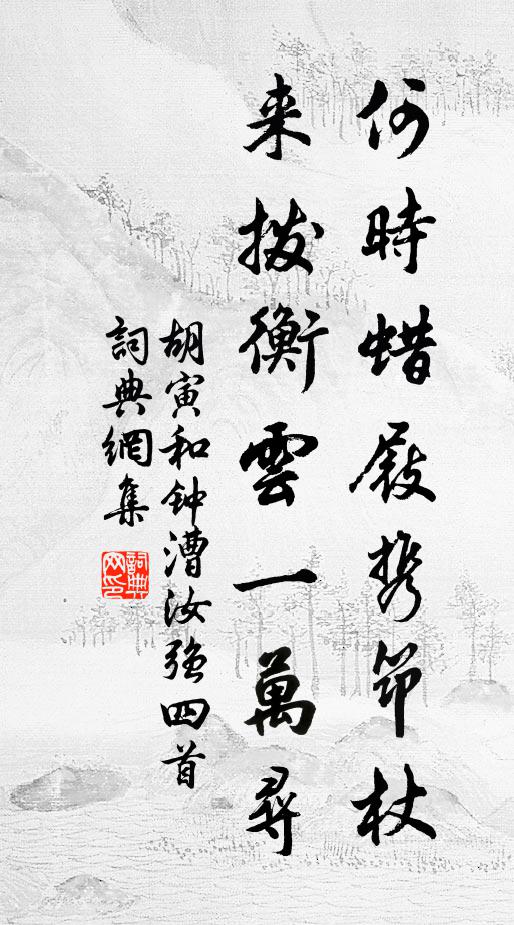 何時蜡屐携筇杖
来拨衡雲一萬尋
胡寅和钟漕汝强四首
詞典網集
詞典网印